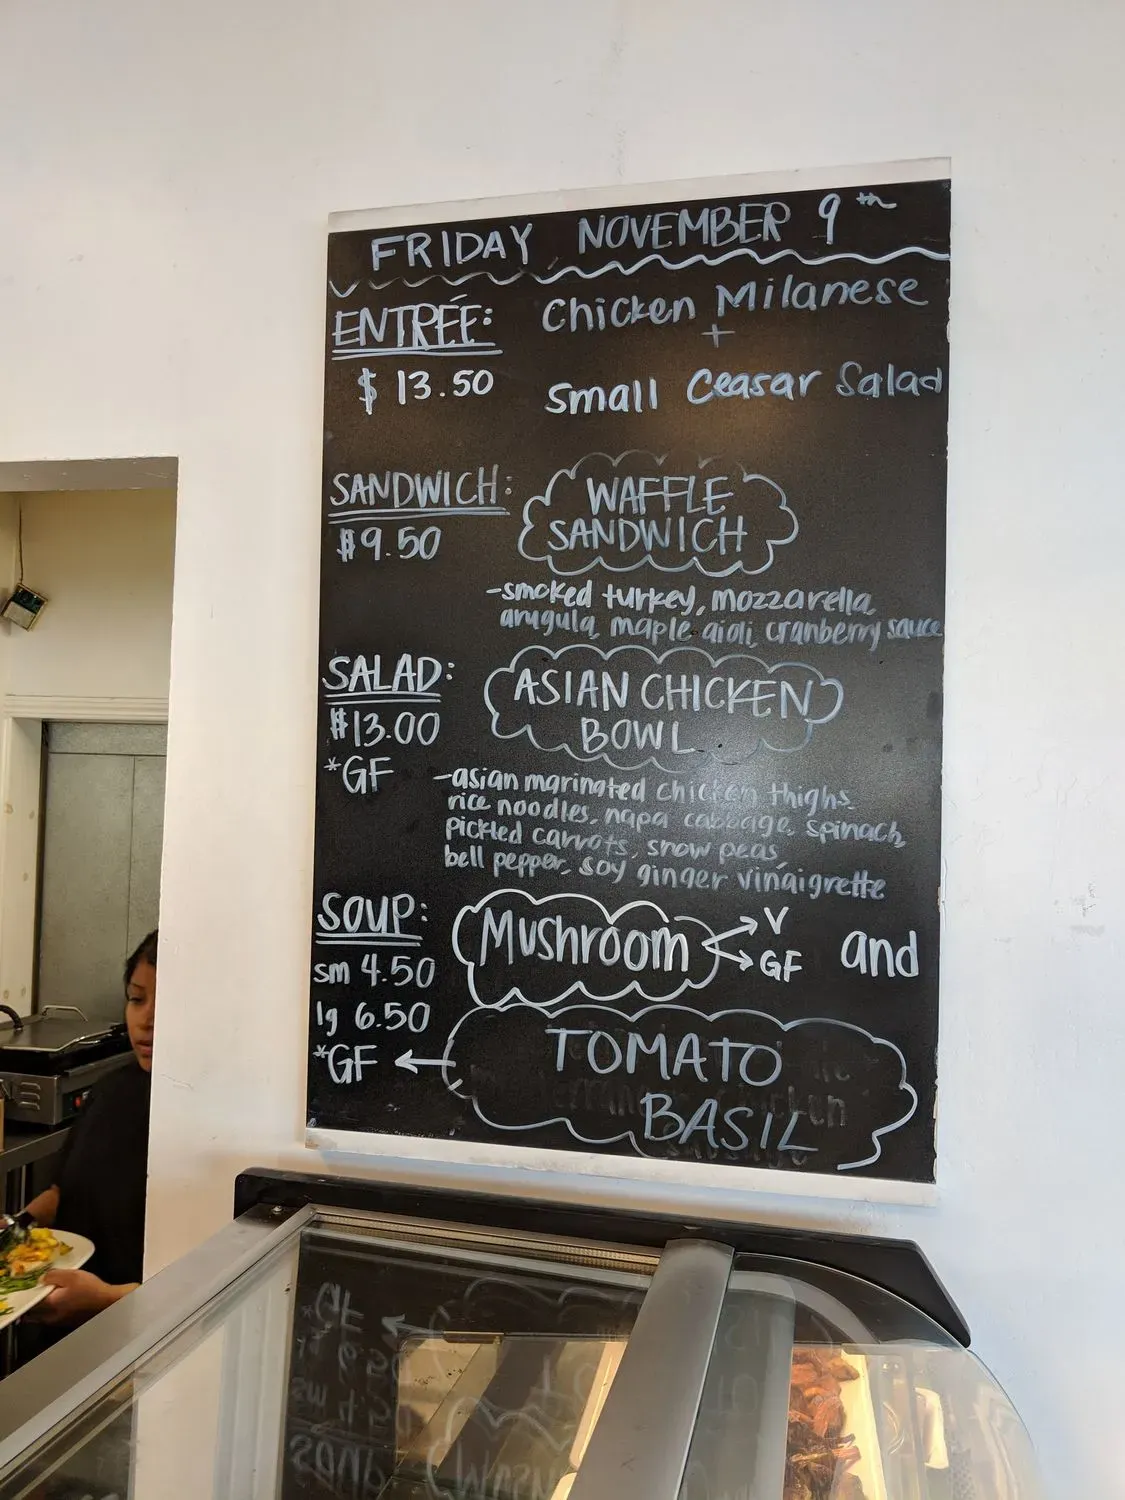 FRIDAY NOVEMBER 9th
ENTRÉE: Chicken Milanese
+
$13.50 Small Ceasar Salad
SANDWICH: WAFFLE
SANDWICH
$9.50
-smoked turkey, mozzarella,
arugula, maple aioli, cranberry sauce
SALAD: ASIAN CHICKEN
BOWL
$13.00
*GF
-asian marinated chicken thighs,
rice noodles, napa cabbage, spinach,
pickled carrots, snow peas,
bell pepper, soy ginger vinaigrette
SOUP: Mushroom V
GF and
sm 4.50
lg 6.50
*GF TOMATO
BASIL